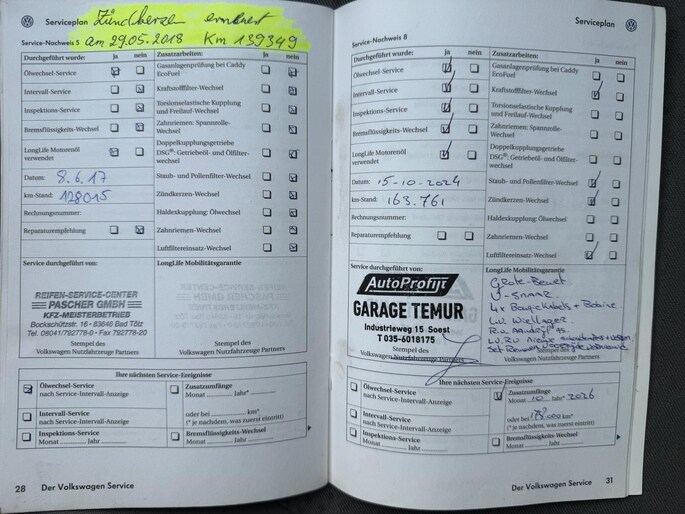 Serviceplan
Zündkerzen erneuert
am 29.05.2018 Km 139349
Service-Nachweis 5
Durchgeführt wurde: ja nein
Zusatzarbeiten: ja nein
Ölwechsel-Service
Intervall-Service
Inspektions-Service
Bremsflüssigkeits-Wechsel
LongLife Motorenöl
verwendet
Datum: 8.6.17
km-Stand: 128015
Rechnungsnummer:
Reparaturempfehlung
Gasanlagenprüfung bei Caddy
EcoFuel
Kraftstofffilter-Wechsel
Torsionselastische Kupplung
und Freilauf-Wechsel
Zahnriemen: Spannrolle-
Wechsel
Doppelkupplungsgetriebe
DSG®: Getriebeöl- und Ölfilter-
wechsel
Staub- und Pollenfilter-Wechsel
Zündkerzen-Wechsel
Haldexkupplung: Ölwechsel
Zahnriemen-Wechsel
Luftfiltereinsatz-Wechsel
Service durchgeführt von:
REIFEN-SERVICE-CENTER
PASCHER GMBH
KFZ-MEISTERBETRIEB
Bockschützstr. 16 - 83646 Bad Tölz
Tel. 08041/792778-0 - Fax 792778-20
Stempel des
Volkswagen Nutzfahrzeuge Partners
LongLife Mobilitätsgarantie
Stempel des
Volkswagen Nutzfahrzeuge Partners
Ihre nächsten Service-Ereignisse
Ölwechsel-Service
nach Service-Intervall-Anzeige
Intervall-Service
nach Service-Intervall-Anzeige
Inspektions-Service
Monat Jahr
Zusatzumfänge
Monat Jahr*
oder bei km*
(* je nachdem, was zuerst eintritt)
Bremsflüssigkeits-Wechsel
Monat Jahr
28 Der Volkswagen Service
Serviceplan
Service-Nachweis 8
Durchgeführt wurde: ja nein
Zusatzarbeiten: ja nein
Ölwechsel-Service
Intervall-Service
Inspektions-Service
Bremsflüssigkeits-Wechsel
LongLife Motorenöl
verwendet
Datum: 15-10-2024
km-Stand: 163.761
Rechnungsnummer:
Reparaturempfehlung
Gasanlagenprüfung bei Caddy
EcoFuel
Kraftstofffilter-Wechsel
Torsionselastische Kupplung
und Freilauf-Wechsel
Zahnriemen: Spannrolle-
Wechsel
Doppelkupplungsgetriebe
DSG®: Getriebeöl- und Ölfilter-
wechsel
Staub- und Pollenfilter-Wechsel
Zündkerzen-Wechsel
Haldexkupplung: Ölwechsel
Zahnriemen-Wechsel
Luftfiltereinsatz-Wechsel
Service durchgeführt von:
AutoProfijt
GARAGE TEMUR
Industrieweg 15 Soest
T 035-6018175
Stempel des
Volkswagen Nutzfahrzeuge Partners
LongLife Mobilitätsgarantie
Grote-Beurt
V-snaar
4x Bougiekabels + Bobine
L.v. Wiellager
R.v. Aandrijf as
Ihre nächsten Service-Ereignisse
Ölwechsel-Service
nach Service-Intervall-Anzeige
Intervall-Service
nach Service-Intervall-Anzeige
Inspektions-Service
Monat Jahr
Zusatzumfänge
Monat 10 Jahr* 2026
oder bei km*
(* je nachdem, was zuerst eintritt)
Bremsflüssigkeits-Wechsel
Monat Jahr
Der Volkswagen Service 31